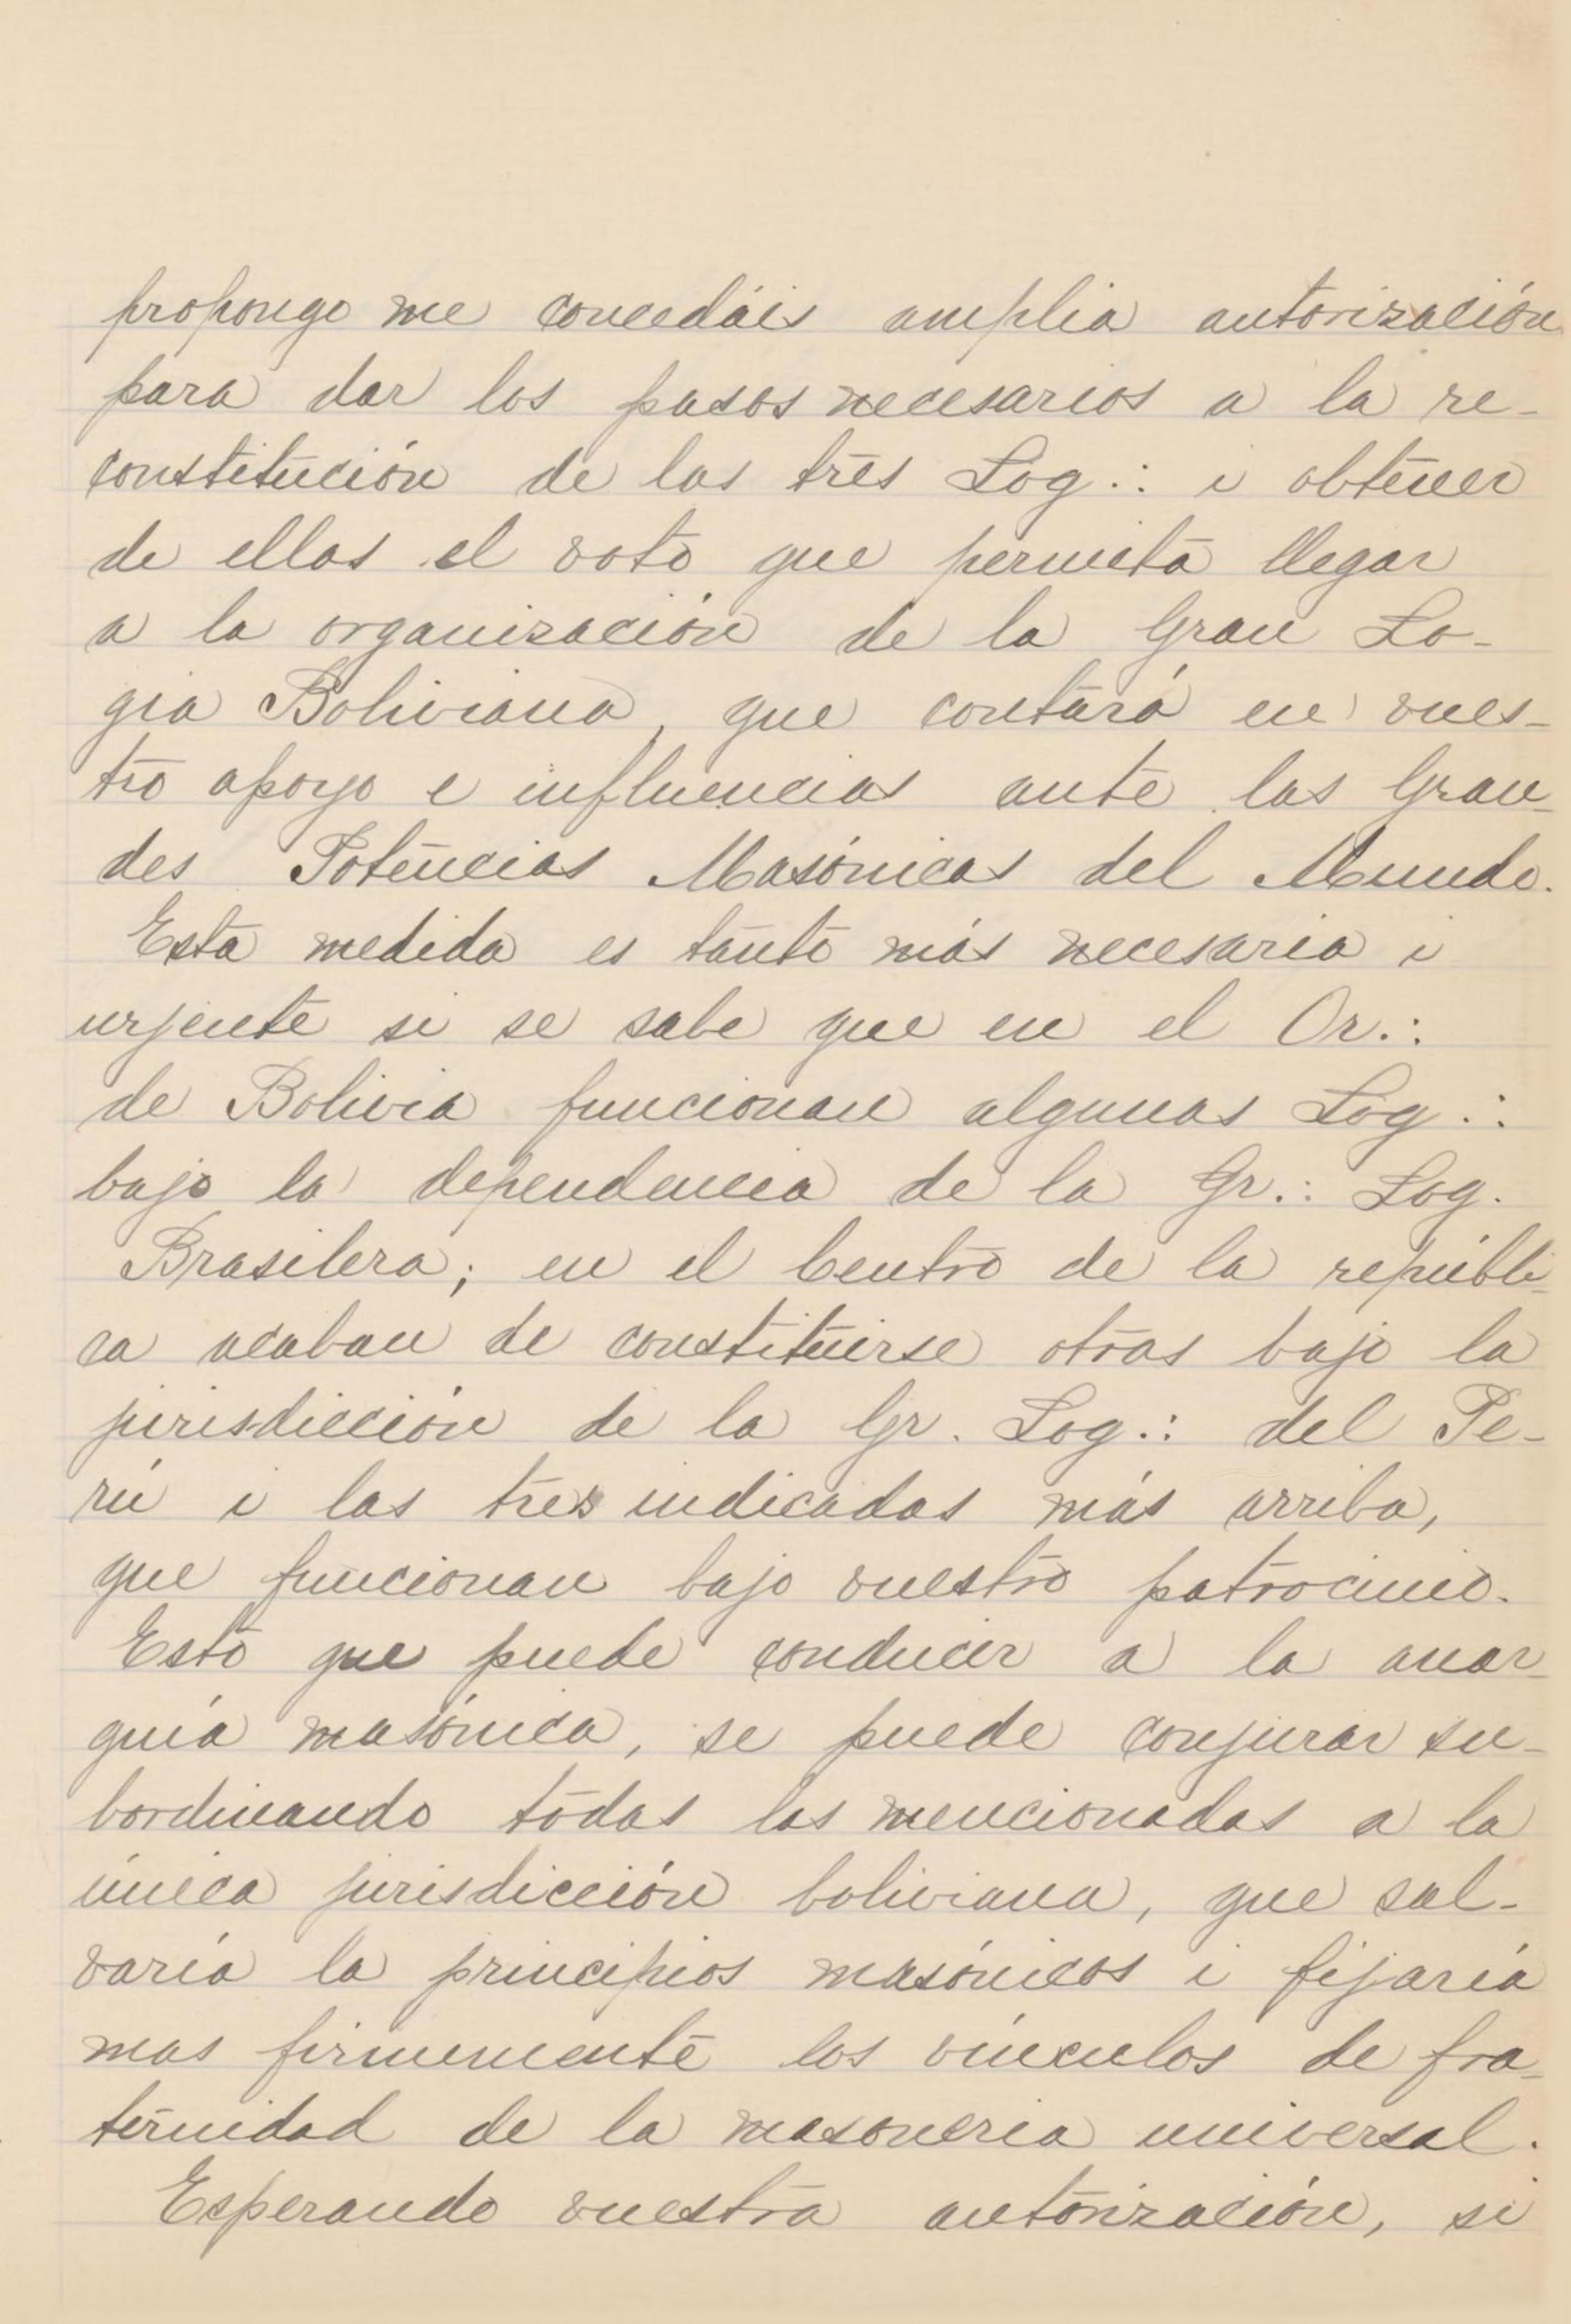 propongo me concedáis amplia autorización
para dar los pasos necesarios a la re-
constitución de las tres Log.: i obtener
de ellas el voto que permita llegar
a la organización de la Gran Lo-
gia Boliviana, que contará en vues-
tro apoyo e influencias ante las Gran-
des Potencias Masónicas del Mundo.
Esta medida es tanto más necesaria i
urjente si se sabe que en el Or.:
de Bolivia funcionan algunas Log.:
bajo la dependencia de la Gr.: Log.
Brasilera; en el Centro de la repúbli-
ca acaban de constituirse otras bajo la
jurisdicción de la Gr. Log.: del Pe-
rú i las tres indicadas más arriba,
que funcionan bajo vuestro patrocinio.
Esto que puede conducir a la anar-
quía masónica, se puede conjurar su-
bordinando todas las mencionadas a la
única jurisdicción boliviana, que sal-
varía la principios masónicos i fijaría
mas firmemente los vínculos de fra-
ternidad de la masoneria universal.
Esperando vuestra autorización, si